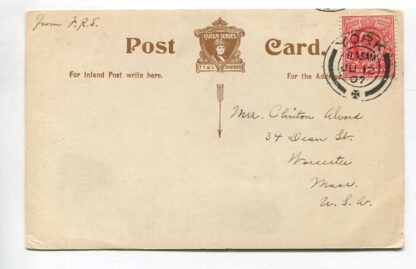 From F.R.S.
Post Card.
QUEEN SERIES
For Inland Post write here.
For the Addre
YORK
8.35AM
JU 12
07
Mrs. Clinton Alvord
34 Dean St.
Worcester
Mass.
U.S.A.